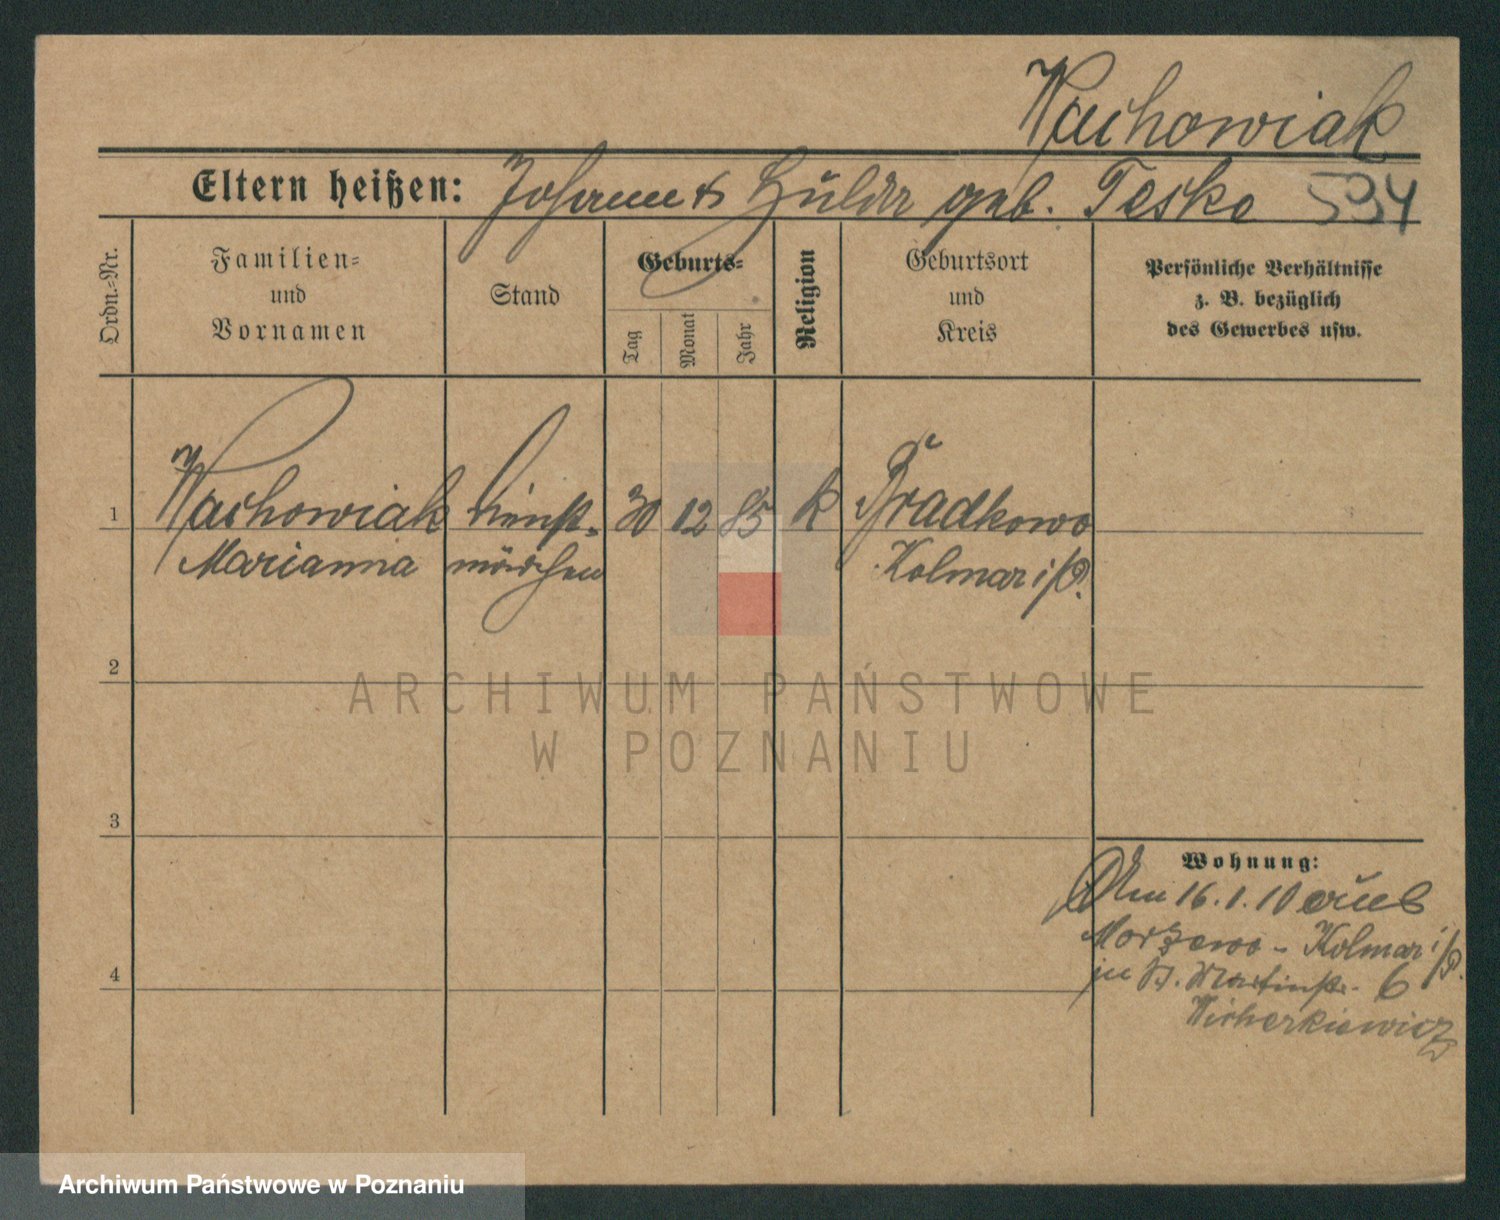 Wachowiak
Eltern heißen: Johann & Hulda geb. Teske 594
Ordn.-Nr.
Familien-
und
Vornamen
Stand
Geburts-
Tag
Monat
Jahr
Religion
Geburtsort
und
Kreis
Persönliche Verhältnisse
z. B. bezüglich
des Gewerbes usw.
1 Wachowiak Dienst- 30 12 85 k Bradkowo
Marianna mädchen Kolmar i/P.
2
3
4
Wohnung:
Am 16.1.10 aus
Morzewo - Kolmar i/P.
zu St. Martinstr. 6
Wicherkiewicz
ARCHIWUM PAŃSTWOWE
W POZNANIU
Archiwum Państwowe w Poznaniu